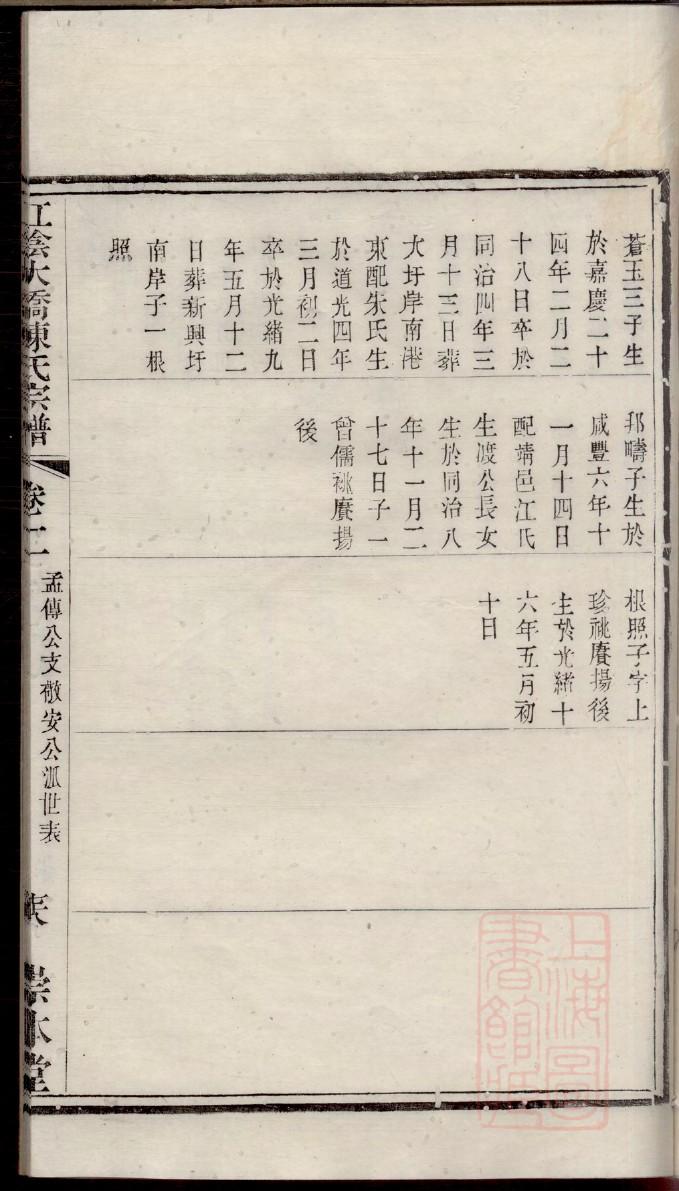 蒼玉三子生
於嘉慶二十
四年二月二
十八日卒於
同治四年三
月十三日葬
大圩岸南港
東配朱氏生
於道光四年
三月初二日
卒於光緒九
年五月十二
日葬新興圩
南岸子一根
照
邦疇子生於
咸豐六年十
一月十四日
配靖邑江氏
生渡公長女
生於同治八
年十一月二
十七日子一
曾儒祧賡揚
後
根照子字上
珍祧賡揚後
生於光緒十
六年五月初
十日
江陰大橋陳氏宗譜
卷十二
孟傳公支敬安公派世表
崇本堂
上海圖書館藏